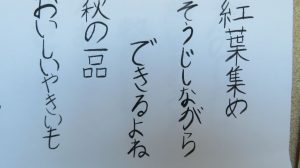 紅葉集め
そうじしながら
できるよね
秋の一品
おいしいやきいも